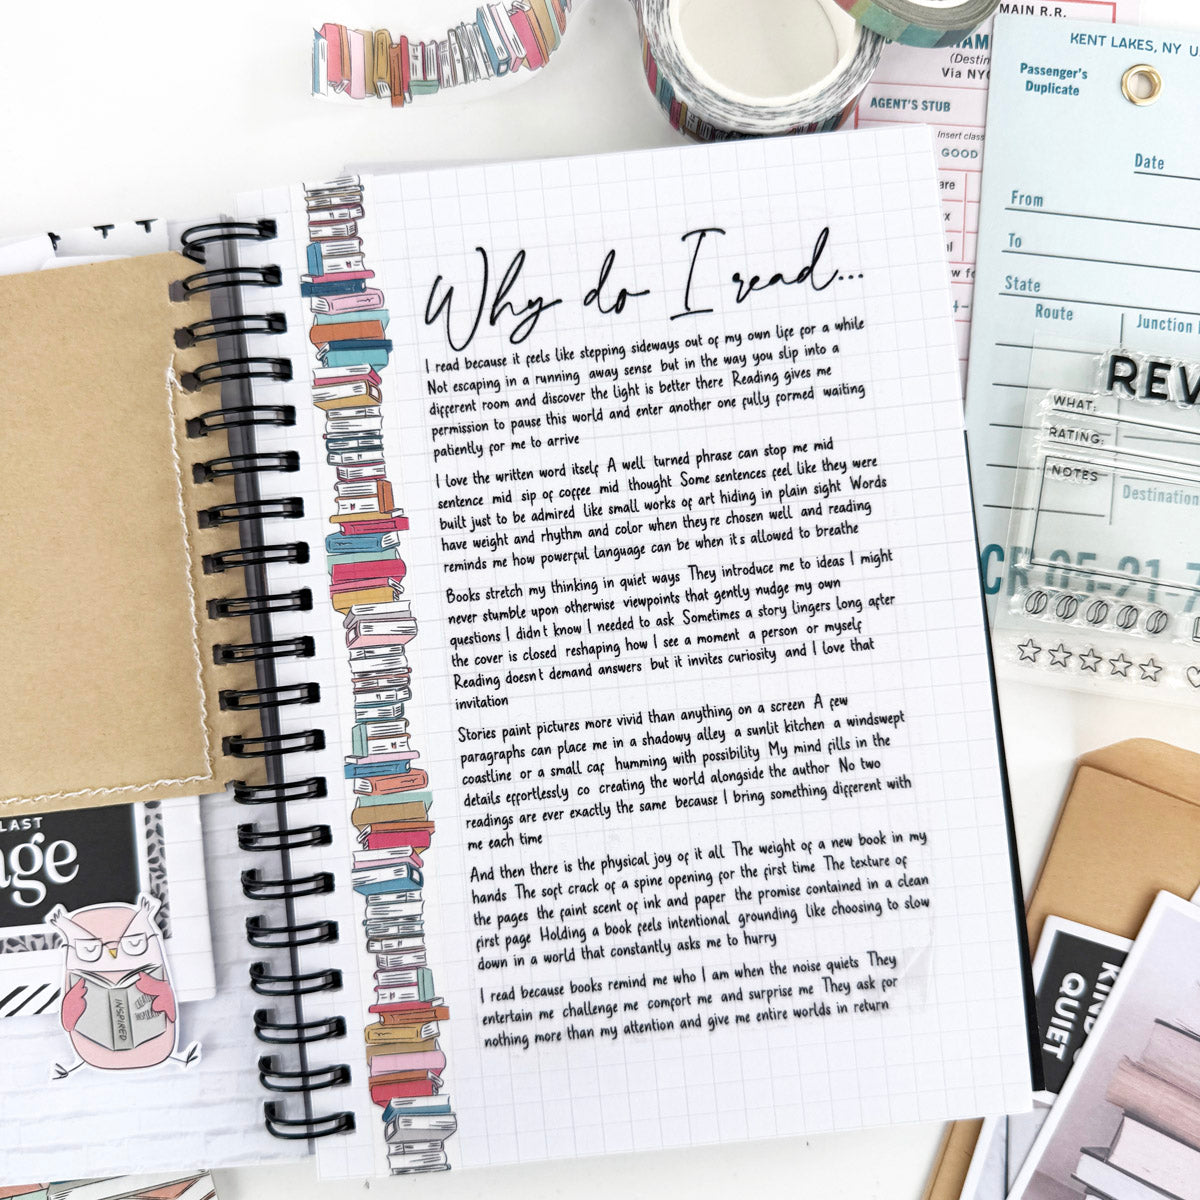 Why do I read...
I read because it feels like stepping sideways out of my own life for a while
Not escaping in a running away sense but in the way you slip into a
different room and discover the light is better there Reading gives me
permission to pause this world and enter another one fully formed waiting
patiently for me to arrive
I love the written word itself A well turned phrase can stop me mid
sentence mid sip of coffee mid thought Some sentences feel like they were
built just to be admired like small works of art hiding in plain sight Words
have weight and rhythm and color when they're chosen well and reading
reminds me how powerful language can be when its allowed to breathe
Books stretch my thinking in quiet ways They introduce me to ideas I might
never stumble upon otherwise viewpoints that gently nudge my own
questions I didn t know I needed to ask Sometimes a story lingers long after
the cover is closed reshaping how I see a moment a person or myself
Reading doesn t demand answers but it invites curiosity and I love that
invitation
Stories paint pictures more vivid than anything on a screen A few
paragraphs can place me in a shadowy alley a sunlit kitchen a windswept
coastline or a small caf humming with possibility My mind fills in the
details effortlessly co creating the world alongside the author No two
readings are ever exactly the same because I bring something different with
me each time
And then there is the physical joy of it all The weight of a new book in my
hands The soft crack of a spine opening for the first time The texture of
the pages the faint scent of ink and paper the promise contained in a clean
first page Holding a book feels intentional grounding like choosing to slow
down in a world that constantly asks me to hurry
I read because books remind me who I am when the noise quiets They
entertain me challenge me comfort me and surprise me They ask for
nothing more than my attention and give me entire worlds in return
MAIN R.R.
(Destin
Via NYC
AGENT'S STUB
Insert class
GOOD
KENT LAKES, NY U
Passenger's
Duplicate
Date
From
To
State
Route
Junction
REV
WHAT:
RATING:
NOTES
Destination
05-21-7
LAST
age
INSPIRED
KIND
QUIET